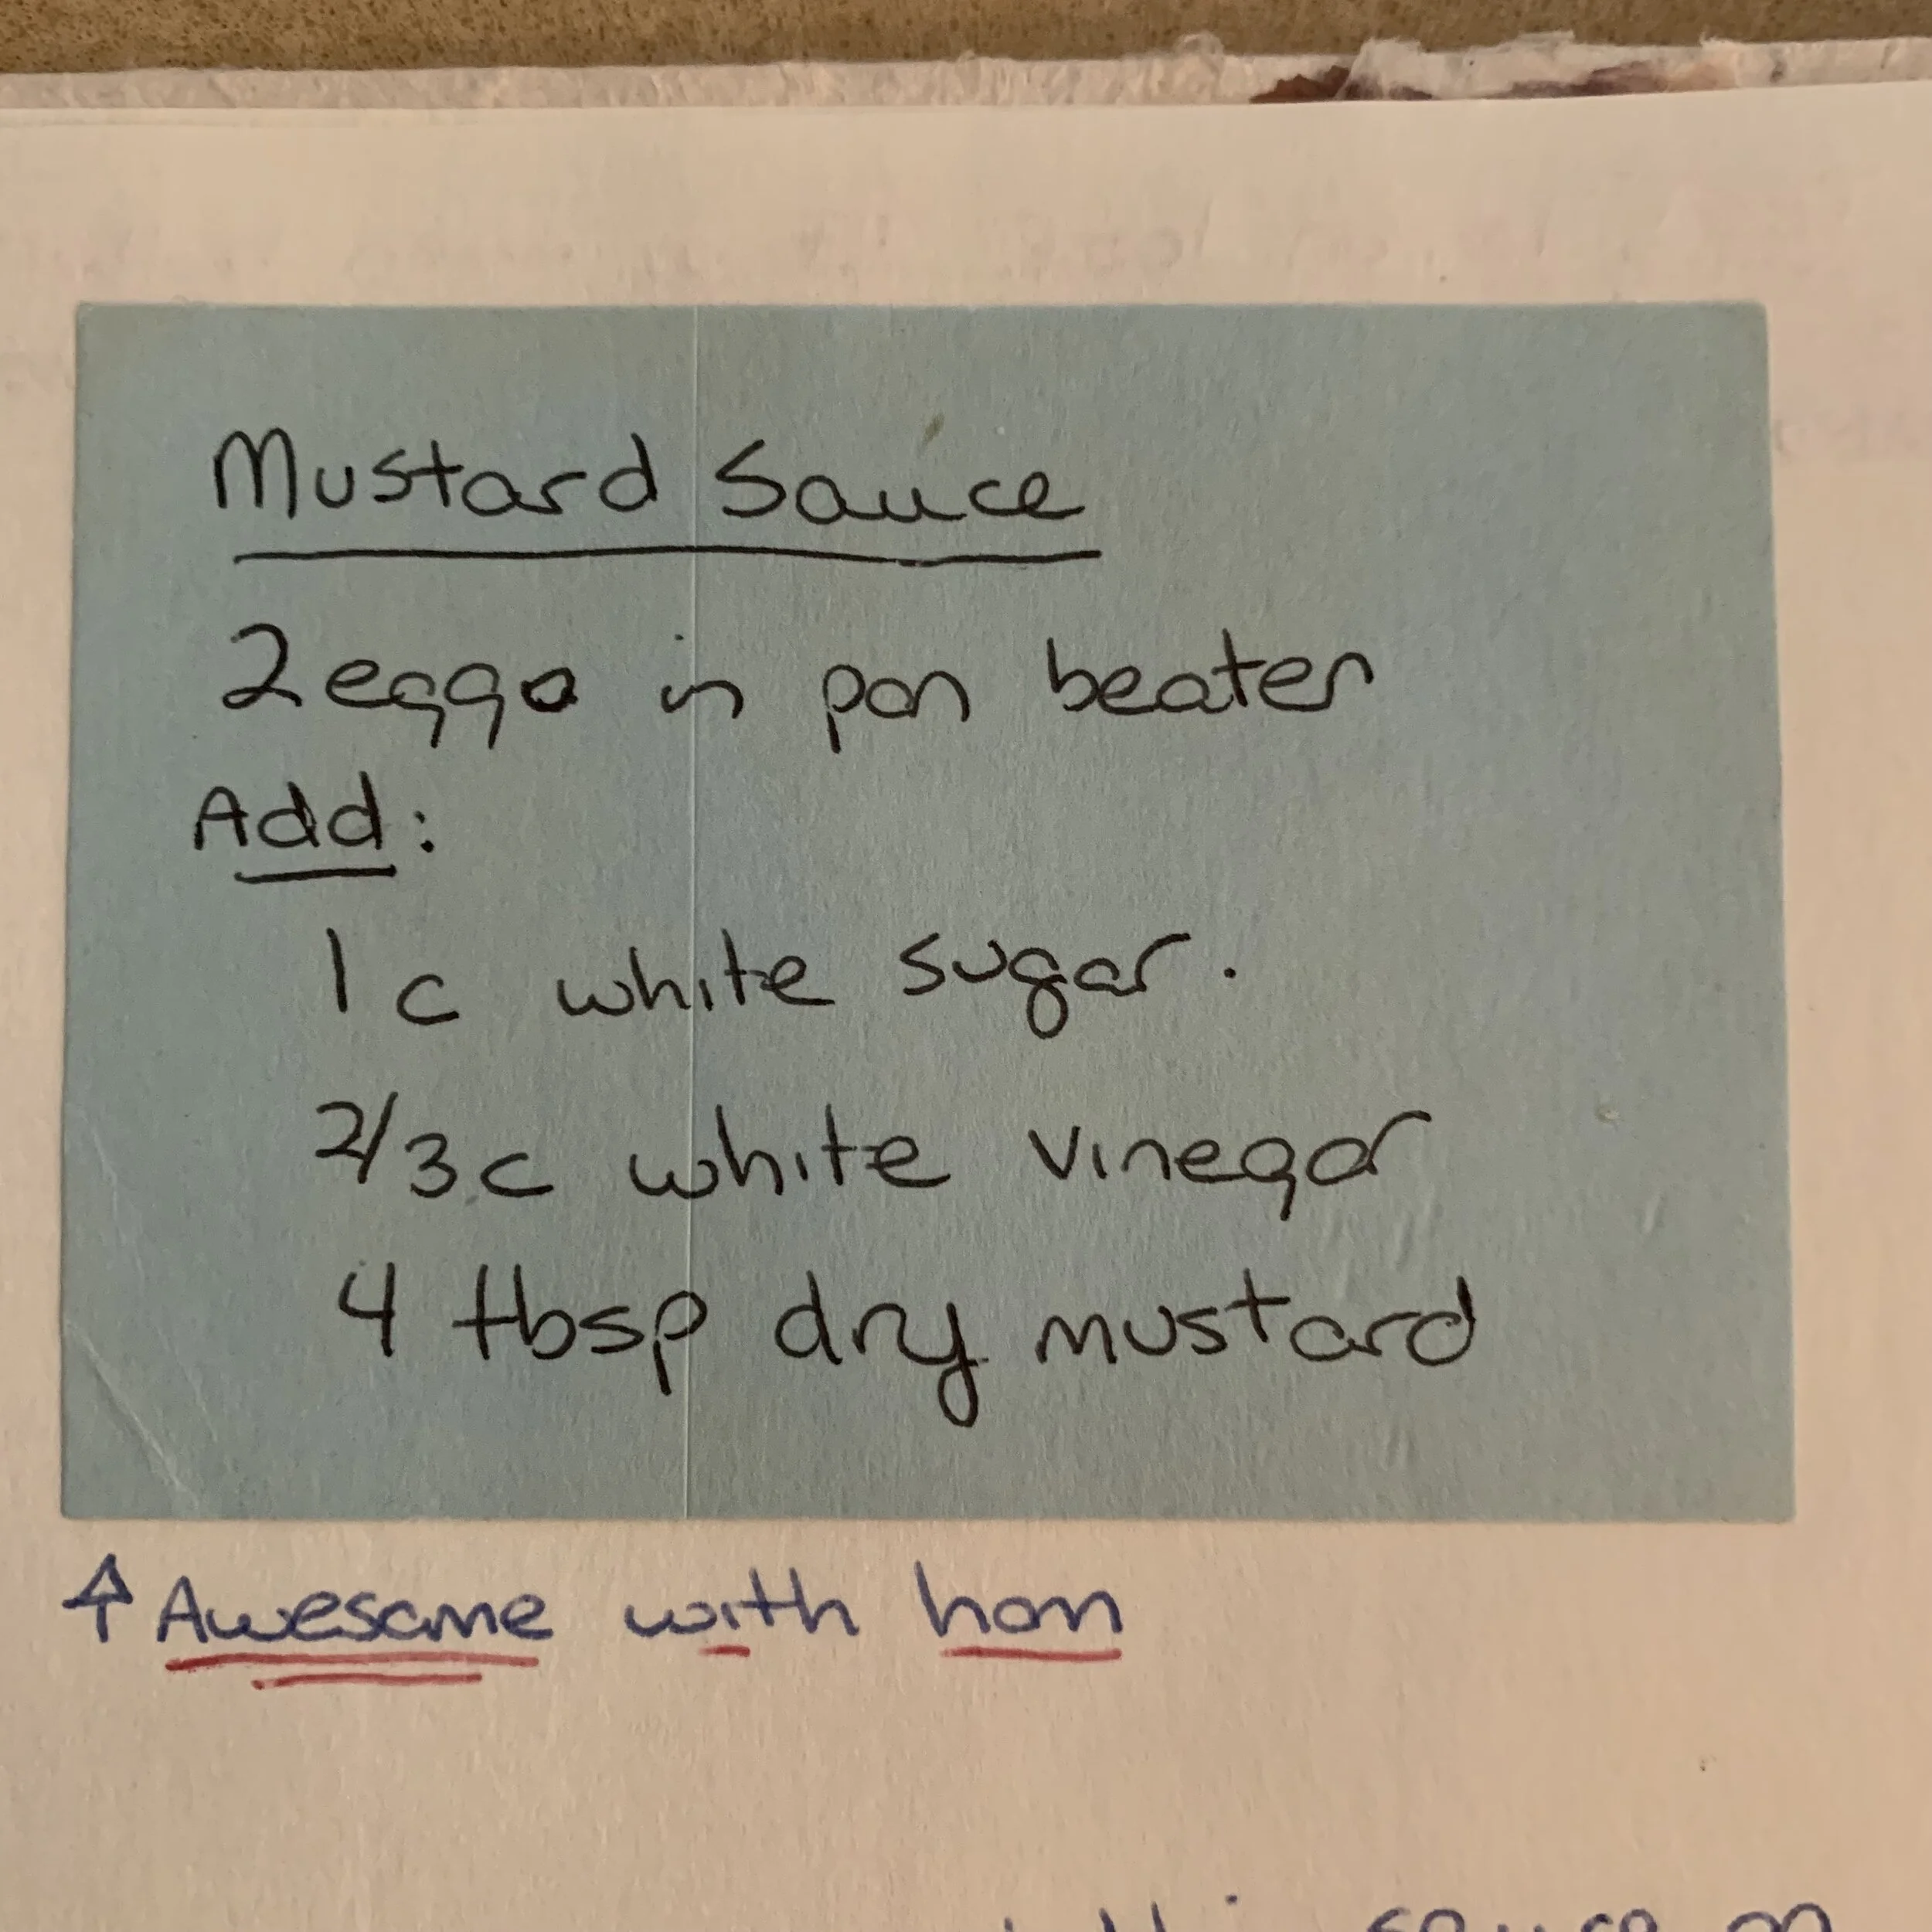 Mustard Sauce
2 eggs in pan beaten
Add:
1 c white sugar.
2/3 c white vinegar
4 tbsp dry mustard
↑ Awesome with ham
sauce on